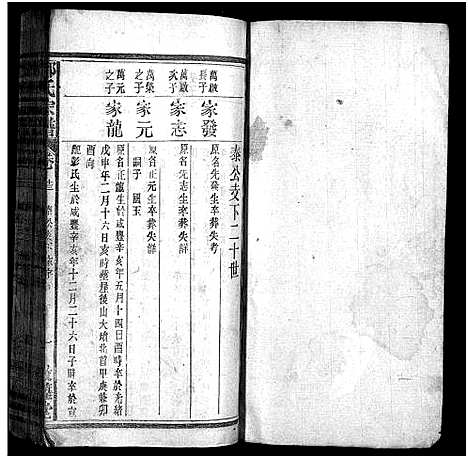 泰公支下二十世
萬啟長子
家發
原名先發生卒葬失考
萬啟次子
家志
原名先志生卒葬失詳
萬榮之子
家元
原名正元生卒葬失詳
嗣子 國玉
萬元之子
家龍
原名正龍生於咸豐辛亥年五月十四日酉時卒於光緒
戊申年二月十六日亥時葬後山大墳北首甲庚兼卯
酉向
配彭氏生於咸豐辛亥年十二月二十六日子時卒於宣
氏宗譜